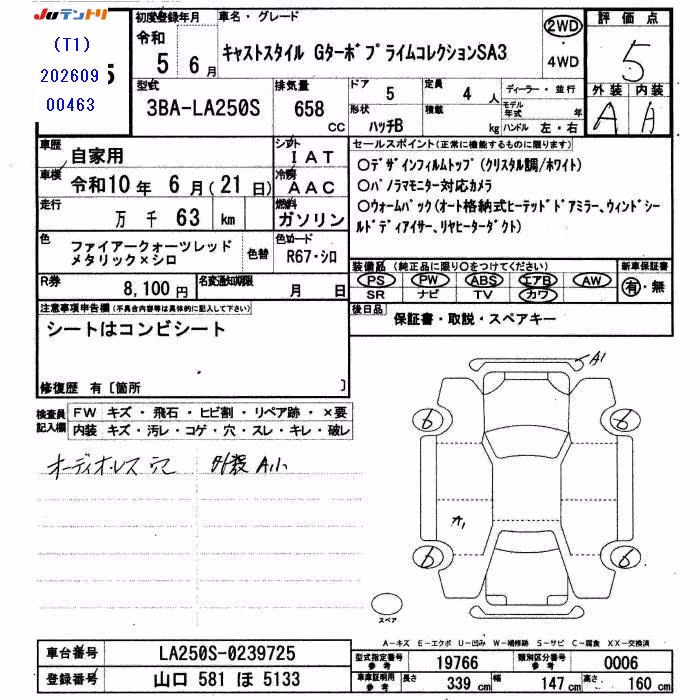 JUテントリ
(T1)
202609
00463
5
初度登録年月
令和
5年 6月
車名・グレード
キャストスタイル Gターボプライムコレクション SA3
2WD
4WD
評価点
5
外装 内装
A A
型式
3BA-LA250S
排気量
658 CC
ドア 5
形状 ハッチB
定員 4人
積載 kg
ディーラー・並行
モデル年式 年
ハンドル 左・右
車歴 自家用
シフト IAT
車検 令和10年 6月(21日)
冷房 AAC
走行 万 千 63 km
燃料 ガソリン
色 ファイアークォーツレッド
メタリック×シロ
色替
色コード R67・シロ
R券 8,100円
名変通知期限 月 日
セールスポイント(正常に機能するものに限ります)
○デザインフィルムトップ(クリスタル調/ホワイト)
○パノラマモニター対応カメラ
○ウォームパック(オート格納式ヒーテッドドアミラー、ウィンドシー
ルドディアイサー、リヤヒーターダクト)
装備品 (純正品に限り○をつけてください)
PS PW ABS エアB AW
SR ナビ TV カワ
新車保証書
有・無
後日品 保証書・取説・スペアキー
注意事項申告欄(不具合内容等は具体的に記入して下さい)
シートはコンビシート
修復歴 有〔箇所 〕
検査員記入欄
FW キズ・飛石・ヒビ割・リペア跡・×要
内装 キズ・汚レ・コゲ・穴・スレ・キレ・破レ
オーディオレス 穴 外装 A小
A1
6 6
A1
6 6
スペア
A-キズ E-エクボ U-凹み W-補修跡 S-サビ C-腐食 XX-交換済
車台番号 LA250S-0239725
登録番号 山口 581 ほ 5133
型式指定番号 参考 19766
類別区分番号 参考 0006
車庫証明用 参考 長さ 339 cm 幅 147 cm 高さ 160 cm